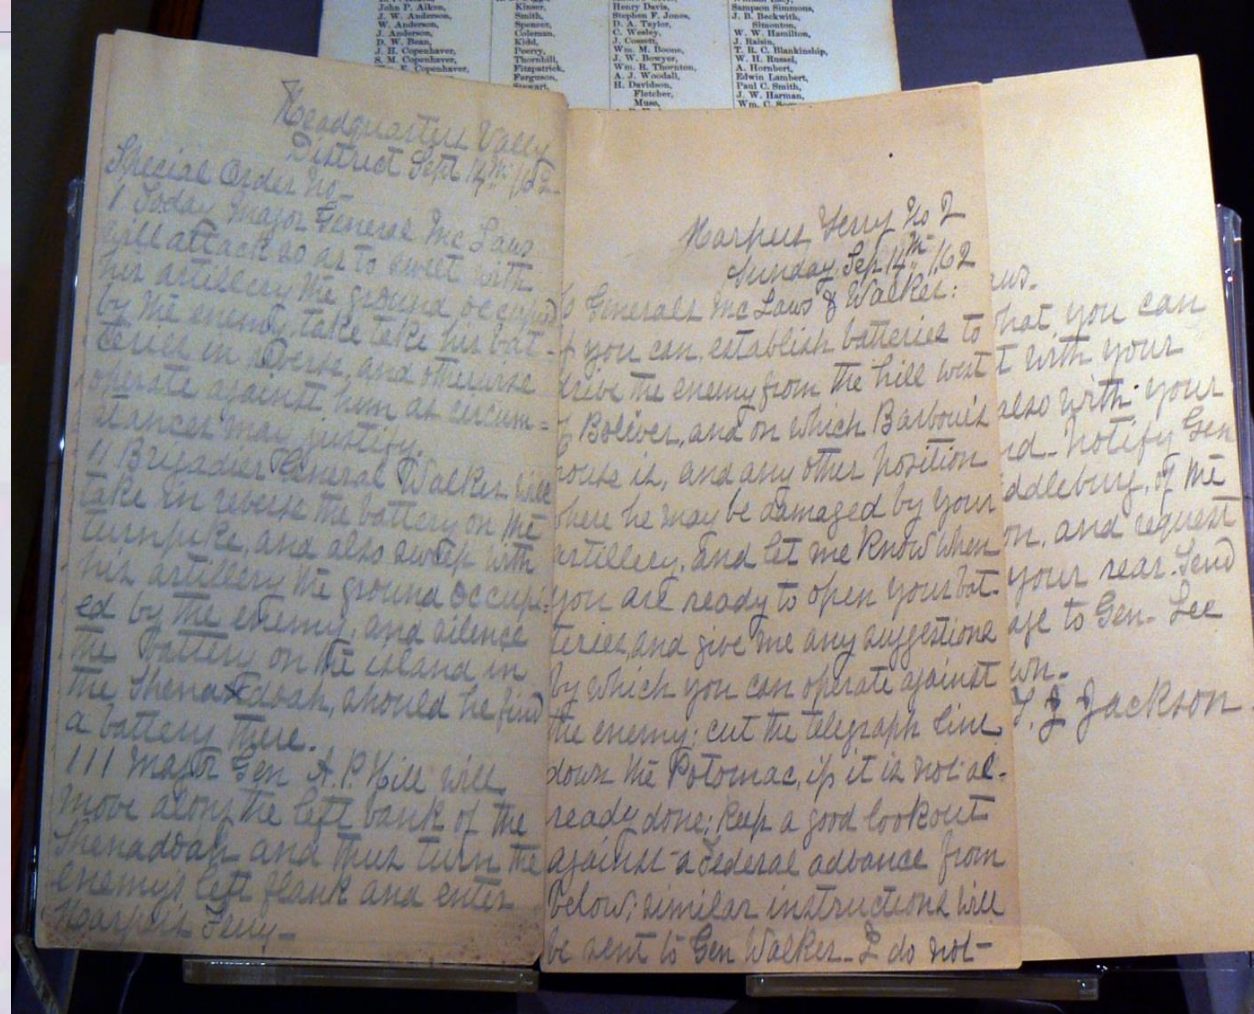 John P. Aiken,
J. W. Anderson,
W. Anderson,
J. Anderson,
D. W. Bean,
J. H. Copenhaver,
S. M. Copenhaver,
Copenhaver,
Kinser,
Smith,
Spencer,
Coleman,
Kidd,
Peery,
Thornhill,
Fitzpatrick,
Ferguson,
Stewart,
Henry Davis,
Stephen F. Jones,
D. A. Taylor,
C. Wesley,
J. Cossett,
Wm. M. Boone,
J. W. Bowyer,
Wm. R. Thornton,
A. J. Woodall,
H. Davidson,
Fletcher,
Muse,
Sampson Simmons,
J. B. Beckwith,
Stanton,
W. W. Hamilton,
J. Raisin,
T. R. C. Blankinship,
W. H. Russel,
A. Hornbert,
Edwin Lambert,
Paul C. Smith,
J. W. Harman,
Wm. C.
Headquarters Vally
District Sept 14th
Special Order No-
1 Today Major General McLaws
will attack so as to sweet with
his artillery the ground occupied
by the enemy, take take his bat-
teries in reverse, and otherwise
operate against him as circum=
stances may justify.
11 Brigadier General Walker will
take in reverse the battery on the
turnpike, and also sweep with
his artillery the ground occupi=
ed by the enemy, and silence
the battery on the island in
the Shenadoah, should he find
a battery there.
111 Major Gen A. P. Hill will
move along the left bank of the
Shenadoah and thus turn the
enemy's left flank and enter
Harpers Ferry-
Harpers Ferry No 2
Sunday, Sep 14th 1862
Generals McLaws & Walker:
If you can, establish batteries to
drive the enemy from the hill west
of Boliver, and on which Barbour's
house is, and any other position
where he may be damaged by your
artillery, and let me know when
you are ready to open your bat-
teries, and give me any suggestions
by which you can operate against
the enemy; cut the telegraph line
down the Potomac, if it is not al-
ready done; keep a good lookout
against a Federal advance from
below; similar instructions will
be sent to Gen Walker- I do not-
ws.
hat, you can
t with your
also with your
nd- Notify Gen
ddleburg, of the
on, and request
your rear. Send
age to Gen- Lee
wn.
J. Jackson